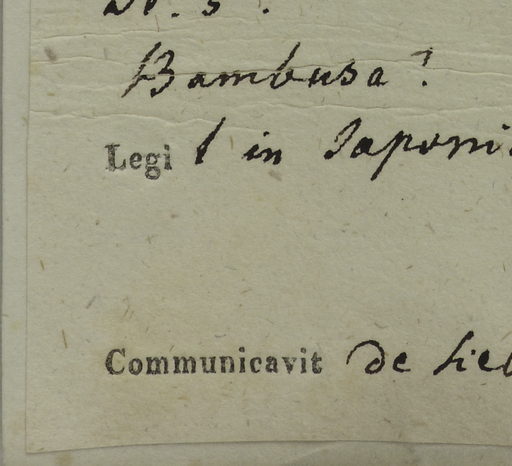 Bambusa?
Legi t in Japoni
Communicavit de Sieb